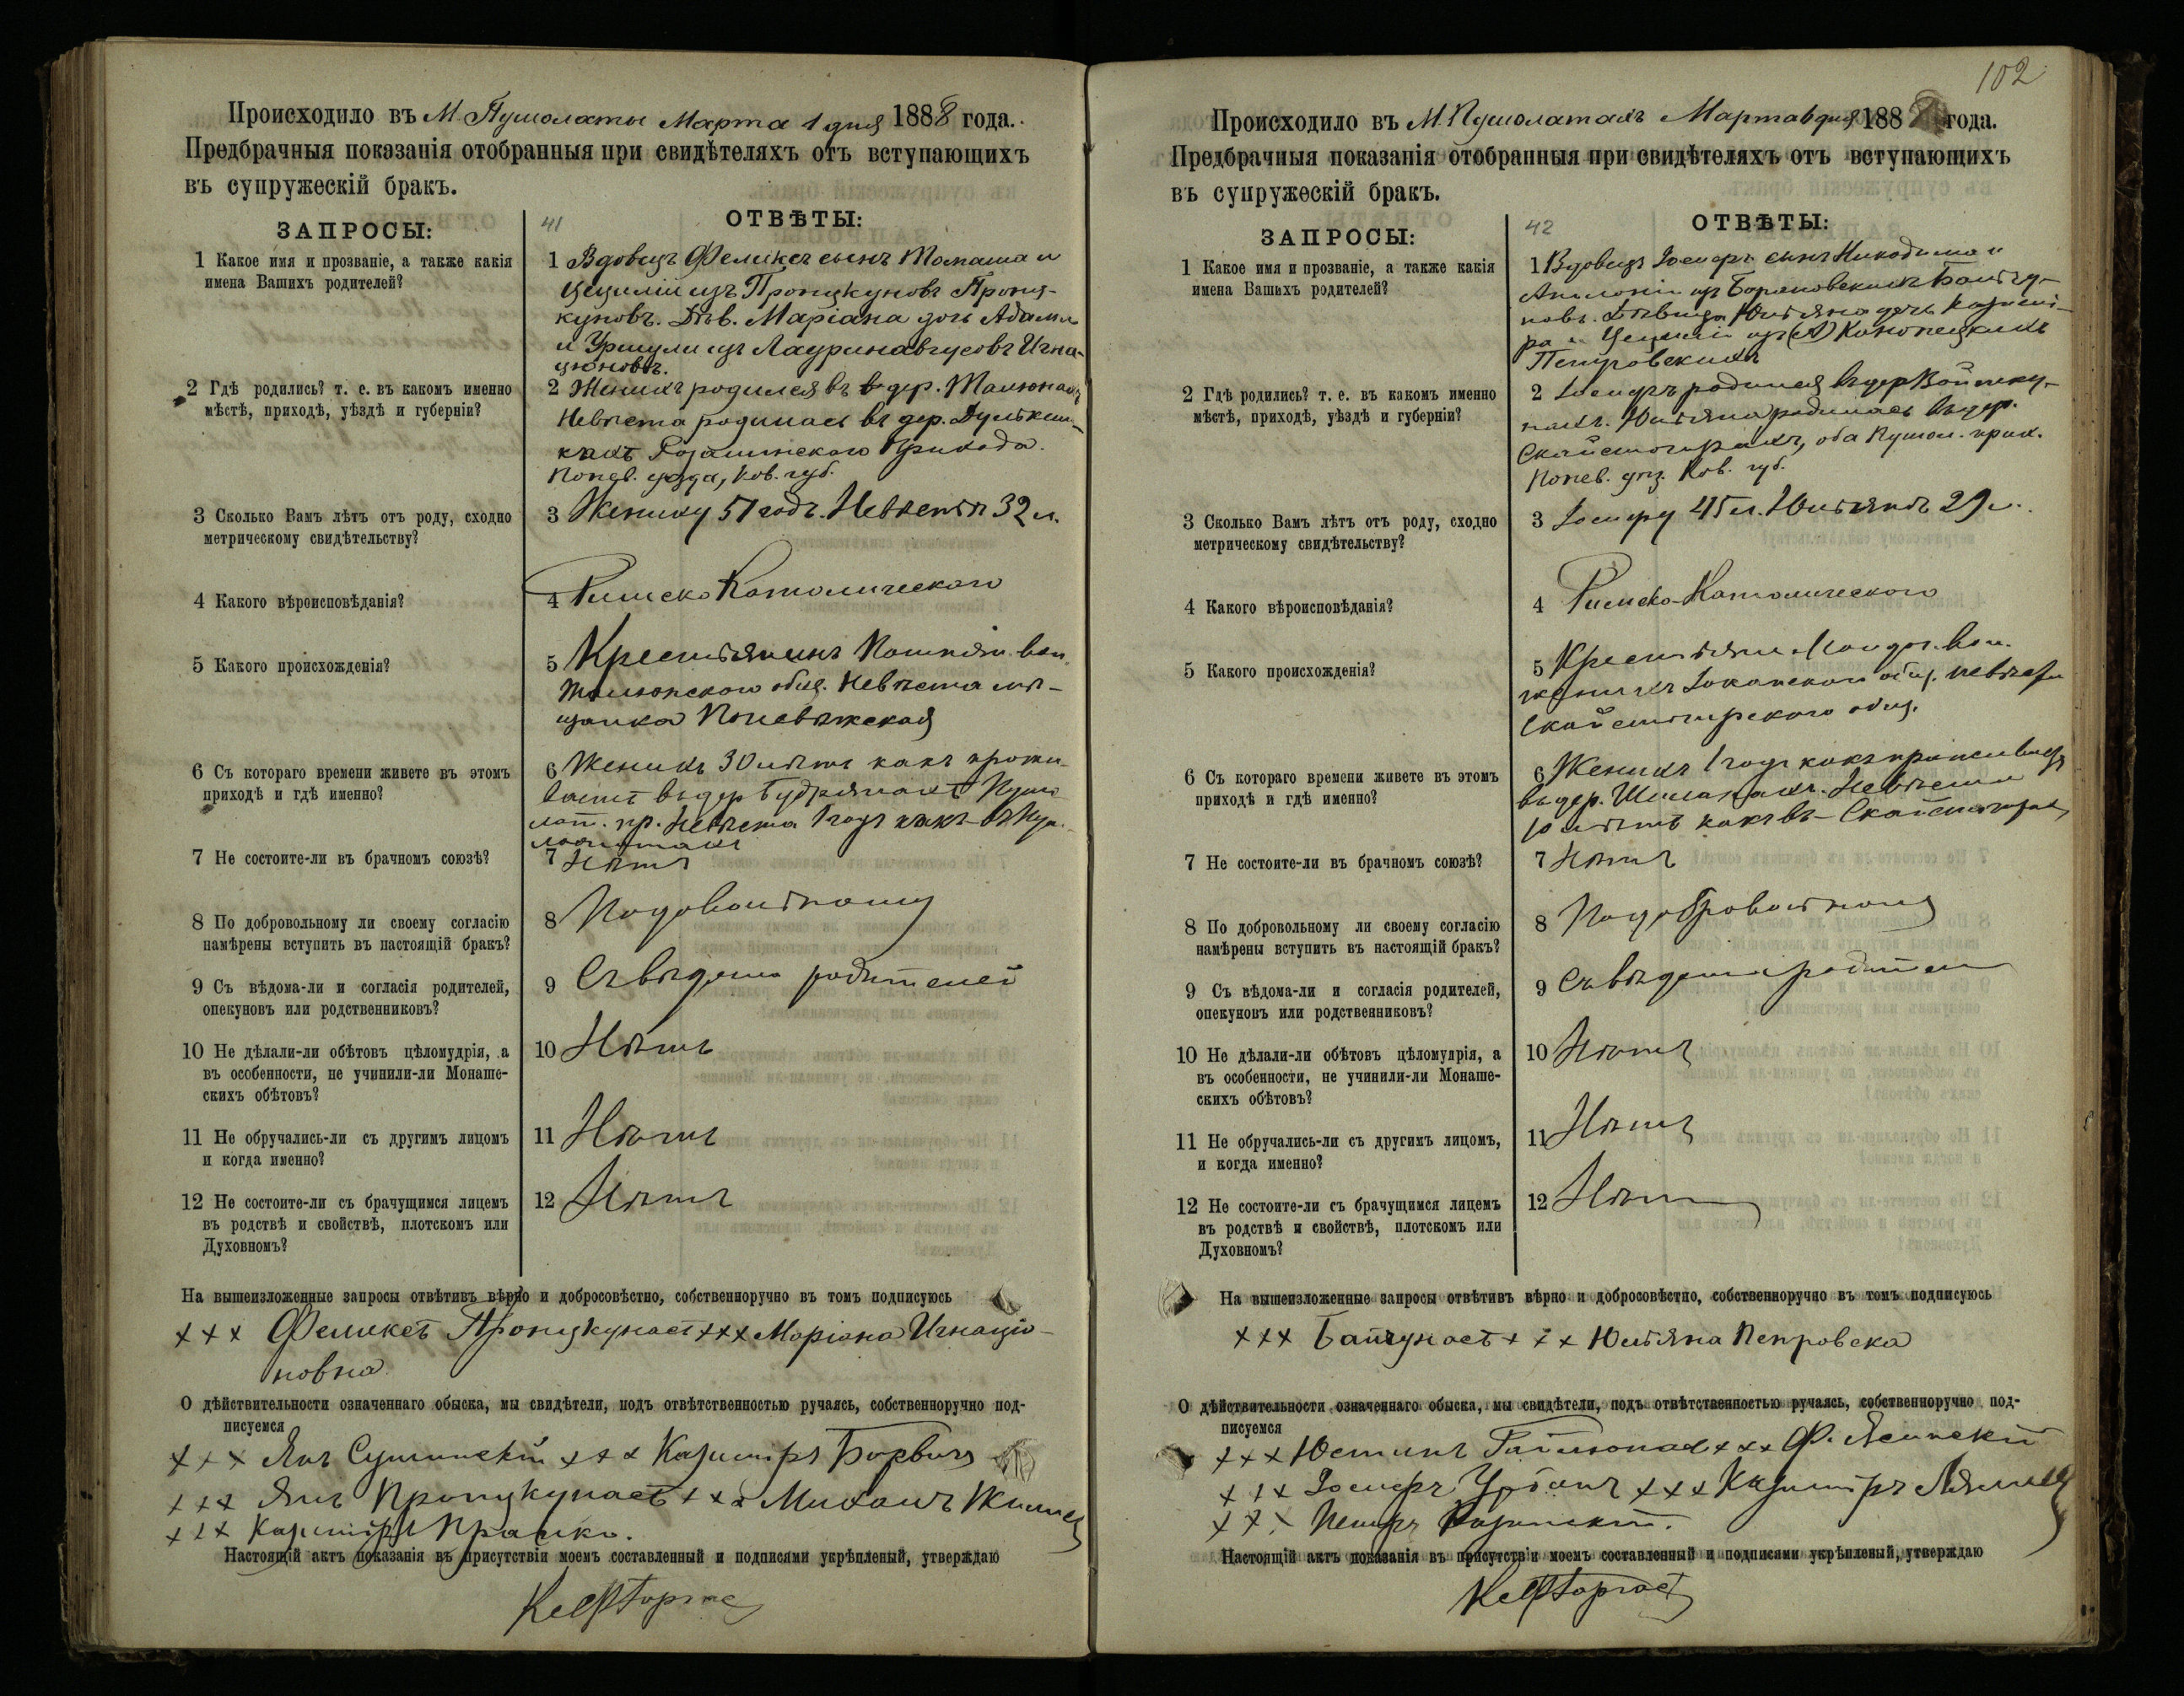 Происходило въ М Пушолаты Марта 1 дня 1888 года.
Предбрачныя показанія отобранныя при свидѣтеляхъ отъ вступающихъ
въ супружескій бракъ.
ЗАПРОСЫ:
41
ОТВѢТЫ:
1 Какое имя и прозваніе, а также какія
имена Вашихъ родителей?
1 Вдовецъ Феликсъ сынъ Томаша и
Цециліи изъ Пронцкуновъ Пронц-
куновъ. Дѣв. Маріана дочь Адама
и Уршули изъ Лавринавгусовъ Игна-
ціоновъ.
2 Гдѣ родились? т. е. въ какомъ именно
мѣстѣ, приходѣ, уѣздѣ и губерніи?
2 Женихъ родился въ дер.
Невѣста родилась въ дер.
Розалинскаго прихода.
Понев. уѣзда, Ков. губ.
3 Сколько Вамъ лѣтъ отъ роду, сходно
метрическому свидѣтельству?
3 Жениху 51 годъ. Невѣстѣ 32 л.
4 Какого вѣроисповѣданія?
4 Римско Католическаго
5 Какого происхожденія?
5 Крестьянинъ вол.
общ. Невѣста мѣ-
щанка Поневѣжская
6 Съ котораго времени живете въ этомъ
приходѣ и гдѣ именно?
6 Женихъ 30 лѣтъ какъ прожи-
ваетъ въ дер. Пушо-
лат. пр. Невѣста 1 годъ какъ въ Пу-
7 Не состоите-ли въ брачномъ союзѣ?
7 Нѣтъ
8 По добровольному ли своему согласію
намѣрены вступить въ настоящій бракъ?
8
9 Съ вѣдома-ли и согласія родителей,
опекуновъ или родственниковъ?
9 Съ вѣдома родителей
10 Не дѣлали-ли обѣтовъ цѣломудрія, а
въ особенности, не учинили-ли Монаше-
скихъ обѣтовъ?
10 Нѣтъ
11 Не обручались-ли съ другимъ лицомъ
и когда именно?
11 Нѣтъ
12 Не состоите-ли съ брачущимся лицемъ
въ родствѣ и свойствѣ, плотскомъ или
Духовномъ?
12 Нѣтъ
На вышеизложенные запросы отвѣтивъ вѣрно и добросовѣстно, собственноручно въ томъ подписуюсь
+++ Феликсъ Пронцкунасъ +++ Маріана Игнаціо-
новна
О дѣйствительности означеннаго обыска, мы свидѣтели, подъ отвѣтственностью ручаясь, собственноручно под-
писуемся
+++ Янъ Сушинскій +++ Казиміръ Борвичъ
+++ Янъ Пронцкунасъ +++ Михаилъ
+++ Казиміръ Прашко.
Настоящій актъ показанія въ присутствіи моемъ составленный и подписями укрѣпленый, утверждаю
102
Происходило въ М. Пушолатахъ Марта 6 дня 188 года.
Предбрачныя показанія отобранныя при свидѣтеляхъ отъ вступающихъ
въ супружескій бракъ.
ЗАПРОСЫ:
42
ОТВѢТЫ:
1 Какое имя и прозваніе, а также какія
имена Вашихъ родителей?
1 Вдовецъ Іосифъ сынъ Никодима и
Аполоніи изъ Барановскихъ
новъ. Дѣвица Юльяна дочь Казимі-
ра и Цециліи изъ (А) Конопецкихъ
Петровскихъ
2 Гдѣ родились? т. е. въ какомъ именно
мѣстѣ, приходѣ, уѣздѣ и губерніи?
2 Іосифъ родился въ дер.
Юльяна родилась въ дер.
Скайстогирахъ, оба Пушол. прих.
Понев. уѣз. Ков. губ.
3 Сколько Вамъ лѣтъ отъ роду, сходно
метрическому свидѣтельству?
3 Іосифу 45 л. Юльянѣ 29 л.
4 Какого вѣроисповѣданія?
4 Римско-Католическаго
5 Какого происхожденія?
5 Крестьяне вол.
женихъ общ. невѣста
Скайстгирскаго общ.
6 Съ котораго времени живете въ этомъ
приходѣ и гдѣ именно?
6 Женихъ 1 годъ какъ проживаетъ
въ дер. Невѣста
10 лѣтъ какъ въ Скайстогирахъ
7 Не состоите-ли въ брачномъ союзѣ?
7 Нѣтъ
8 По добровольному ли своему согласію
намѣрены вступить въ настоящій бракъ?
8 По добровольному
9 Съ вѣдома-ли и согласія родителей,
опекуновъ или родственниковъ?
9 Съ вѣдома родителей
10 Не дѣлали-ли обѣтовъ цѣломудрія, а
въ особенности, не учинили-ли Монаше-
скихъ обѣтовъ?
10 Нѣтъ
11 Не обручались-ли съ другимъ лицомъ,
и когда именно?
11 Нѣтъ
12 Не состоите-ли съ брачущимся лицемъ
въ родствѣ и свойствѣ, плотскомъ или
Духовномъ?
12 Нѣтъ
На вышеизложенные запросы отвѣтивъ вѣрно и добросовѣстно, собственноручно въ томъ подписуюсь
+++ Балчунасъ +++ Юльяна Петровска
О дѣйствительности означеннаго обыска, мы свидѣтели, подъ отвѣтственностью ручаясь, собственноручно под-
писуемся
+++ Юстинъ +++ Ф. Ясинскій
+++ Іосифъ Урбанъ +++ Казиміръ
+++ Петръ
Настоящій актъ показанія въ присутствіи моемъ составленный и подписями укрѣпленый, утверждаю